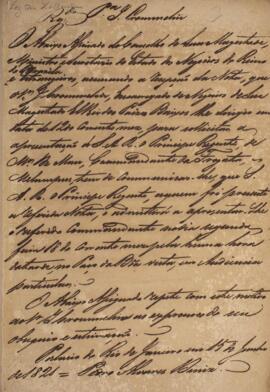 O Abaixo Assinado do Conselho de Sua Magestade
Ministro e Secretario de Estado de Negocios do Reino
e Estrangeiros, accusando a recepção da Nota, que
o Sr. Crommelin, Encarregado de Negocios de Sua
Magestade El Rei dos Paizes Baixos lhe dirigio em
data de 12 do Corrente mez, para solicitar a
apresentação a S. A. R. o Principe Regente, de
Mr. de Man, Commandante da Fragata
tem de Communicar-lhe, que S.
A. R. o Principe Regente, a quem foi presente
a referida Nota, admittirá a apresentar-lhe
o referido Commandante na segunda
feira 18 do Corrente mez pela huma hora
da tarde, no Paço da Boa vista, em Audiencia
particular.
O Abaixo Assignado repete com este motivo
ao Sr. Crommelin as expressoens de seu
obsequio e estima.
Palacio do Rio de Janeiro em 15 de Junho
de 1821 = Pedro Alvares Diniz.